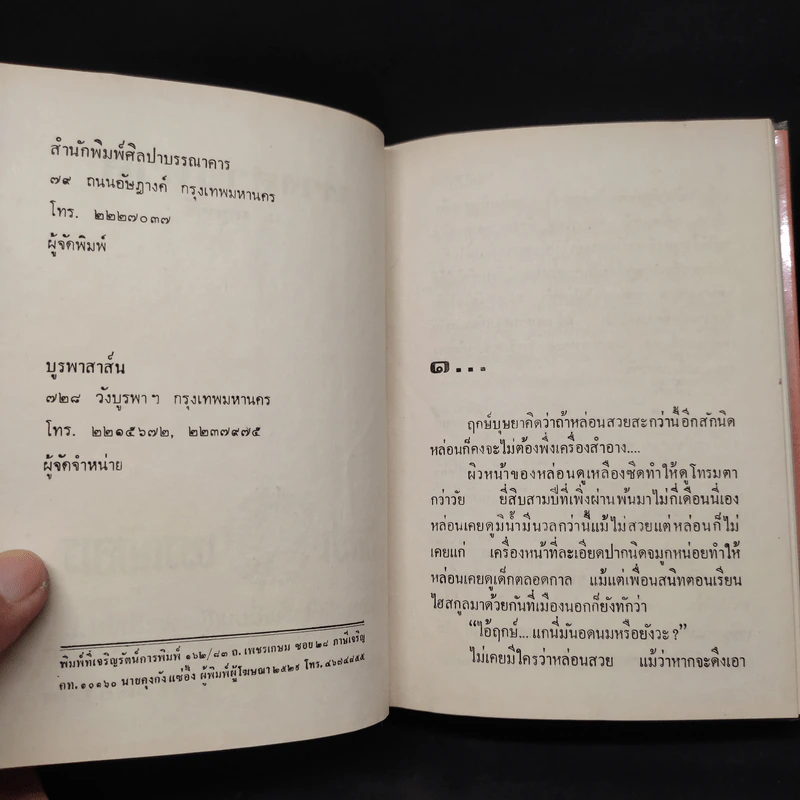 สำนักพิมพ์ศิลปาบรรณาคาร
๗๙ ถนนอัษฎางค์ กรุงเทพมหานคร
โทร. ๒๒๒๗๐๓๗
ผู้จัดพิมพ์
บูรพาสาส์น
๗๒๘ วังบูรพา ฯ กรุงเทพมหานคร
โทร. ๒๒๑๕๖๗๒, ๒๒๓๗๙๗๕
ผู้จัดจำหน่าย
พิมพ์ที่เจริญรัตน์การพิมพ์ ๑๖๒/๘๓ ถ. เพชรเกษม ซอย ๒๘ ภาษีเจริญ
กท. ๑๐๑๖๐ นายคุงกัง แซ่อึ้ง ผู้พิมพ์ผู้โฆษณา ๒๕๒๙ โทร. ๔๖๗๔๘๕๕
๑...
ฤกษ์บุษยาคิดว่าถ้าหล่อนสวยสะกว่านี้อีกสักนิด
หล่อนก็คงจะไม่ต้องพึ่งเครื่องสำอาง....
ผิวหน้าของหล่อนดูเหลืองซิดทำให้ดูโทรมตา
กว่าวัย ยี่สิบสามปีที่เพิ่งผ่านพ้นมาไม่กี่เดือนนี่เอง
หล่อนเคยดูมีน้ำมีนวลกว่านี้แม้ไม่สวยแต่หล่อนก็ไม่
เคยแก่ เครื่องหน้าที่ละเอียดปากนิดจมูกหน่อยทำให้
หล่อนเคยดูเด็กตลอดกาล แม้แต่เพื่อนสนิทตอนเรียน
ไฮสกูลมาด้วยกันที่เมืองนอกก็ยังทักว่า
“ไอ้ฤกษ์... แกนี่มันอดนมหรือยังวะ ?”
ไม่เคยมีใครว่าหล่อนสวย แม้ว่าหากจะดึงเอา